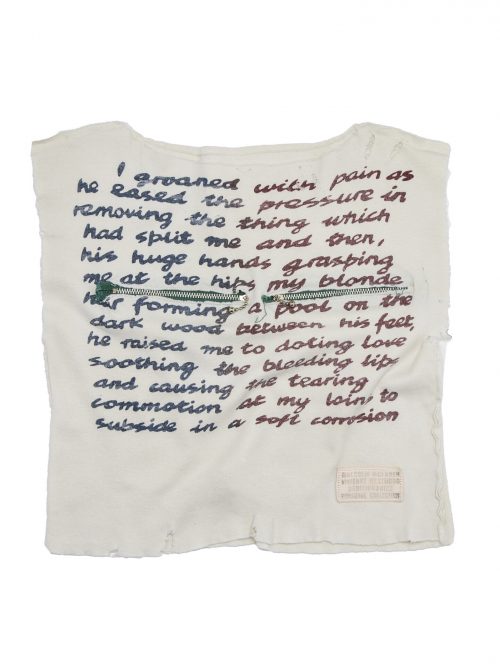 I groaned with pain as
he eased the pressure in
removing the thing which
had split me and then,
his huge hands grasping
me at the hips my blonde
hair forming a pool on the
dark wood between his feet,
he raised me to doting love
soothing the bleeding lips
and causing the tearing
commotion at my loins to
subside in a soft corrosion
MALCOLM MCLAREN
VIVIENNE WESTWOOD